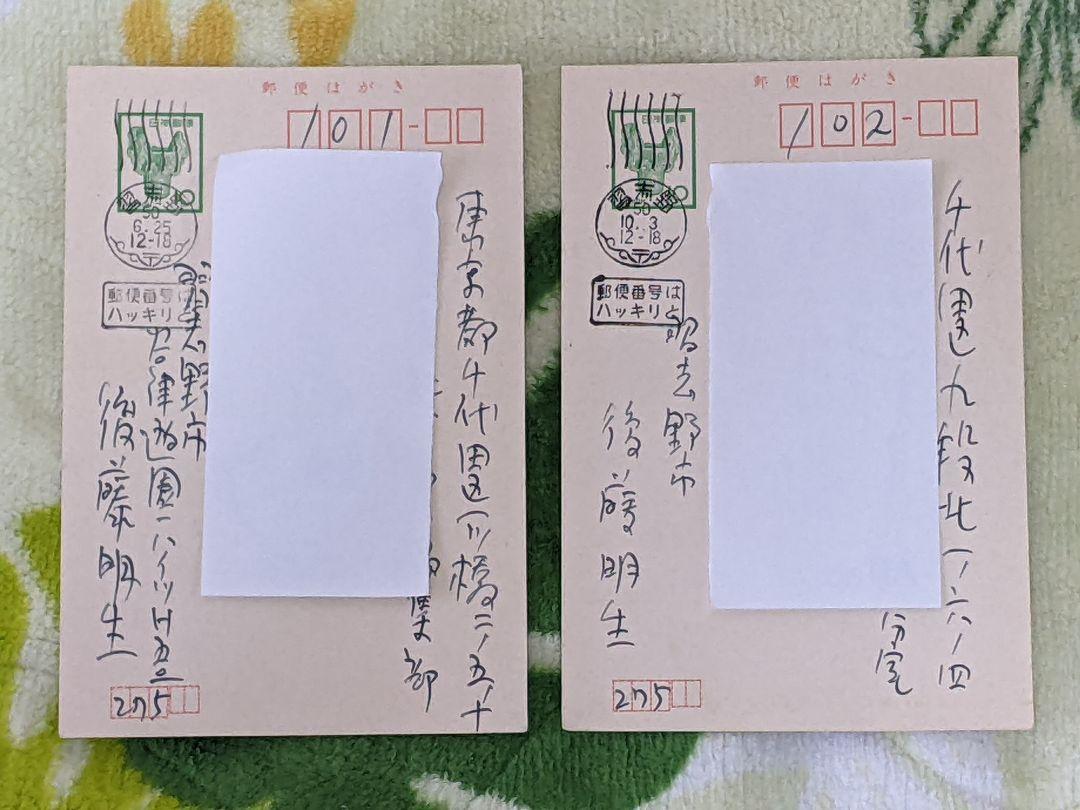 郵便はがき
日本郵便
101-
東京都千代田区一ツ橋二ノ五ノ十
部
習志野市
谷津遊園ハイツ
後藤明生
275
習志野
50
6.25
12-18
〒
郵便番号は
ハッキリと
郵便はがき
日本郵便
102-
千代田区九段北一ノ六ノ四
分室
習志野市
後藤明生
275
習志野
50
10.3
12-18
〒
郵便番号は
ハッキリと